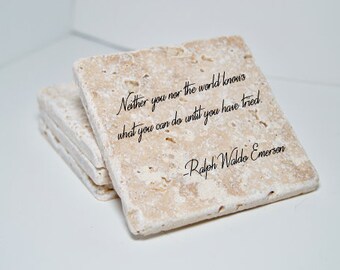 Neither you nor the world knows
what you can do until you have tried.
-Ralph Waldo Emerson